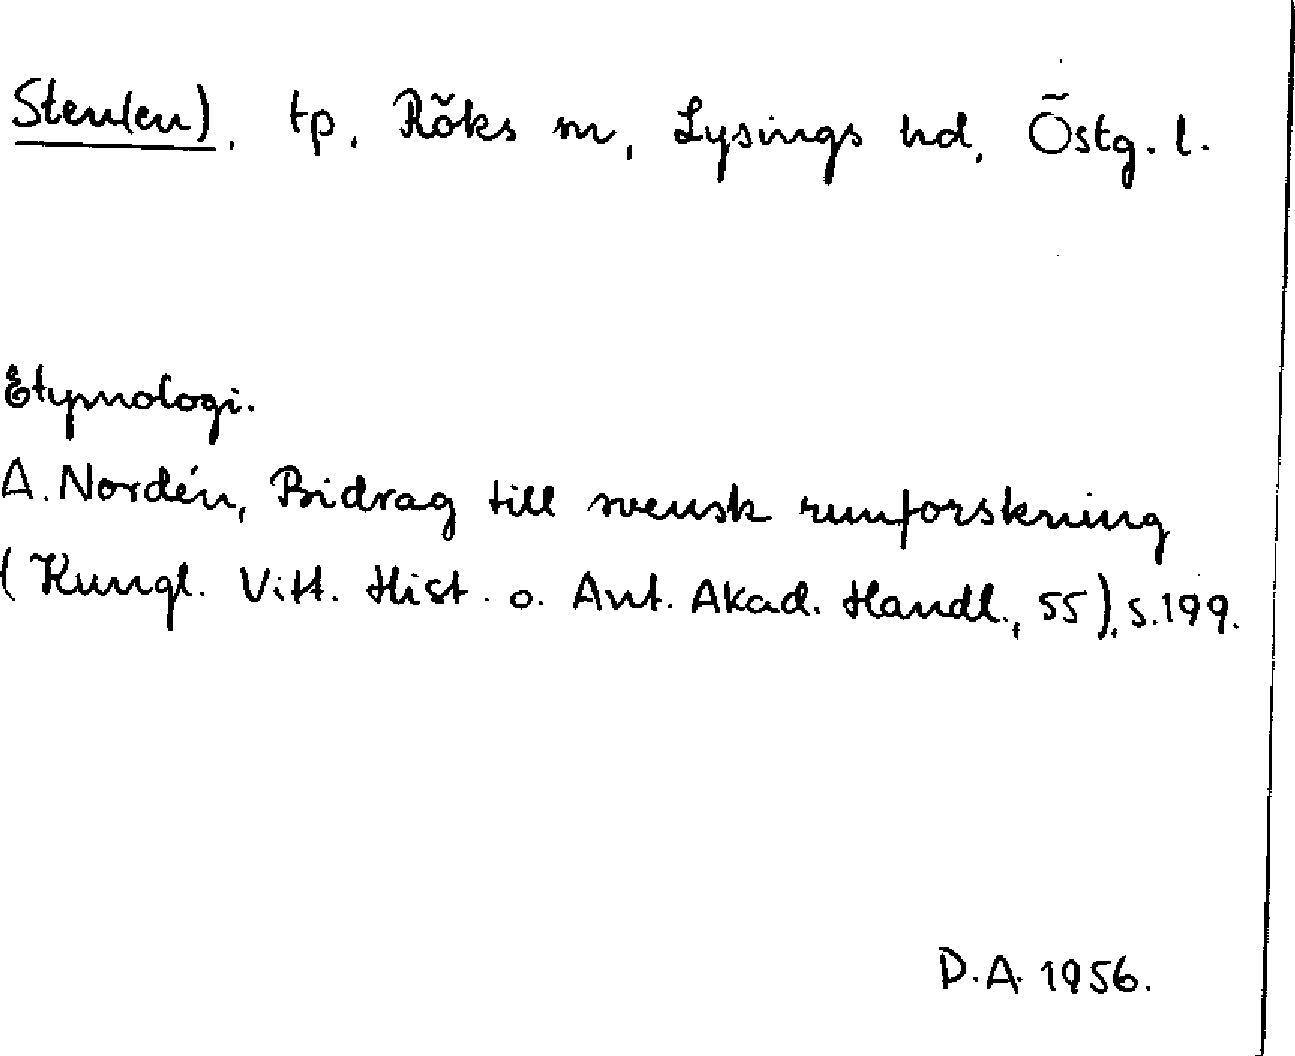 Sten(en), tp. Röks sn, Lysings hd, Östg. l.
Etymologi.
A. Nordén, Bidrag till svensk runforskning
(Kungl. Vitt. Hist. o. Ant. Akad. Handl., 55), s. 199.
D.A. 1956.